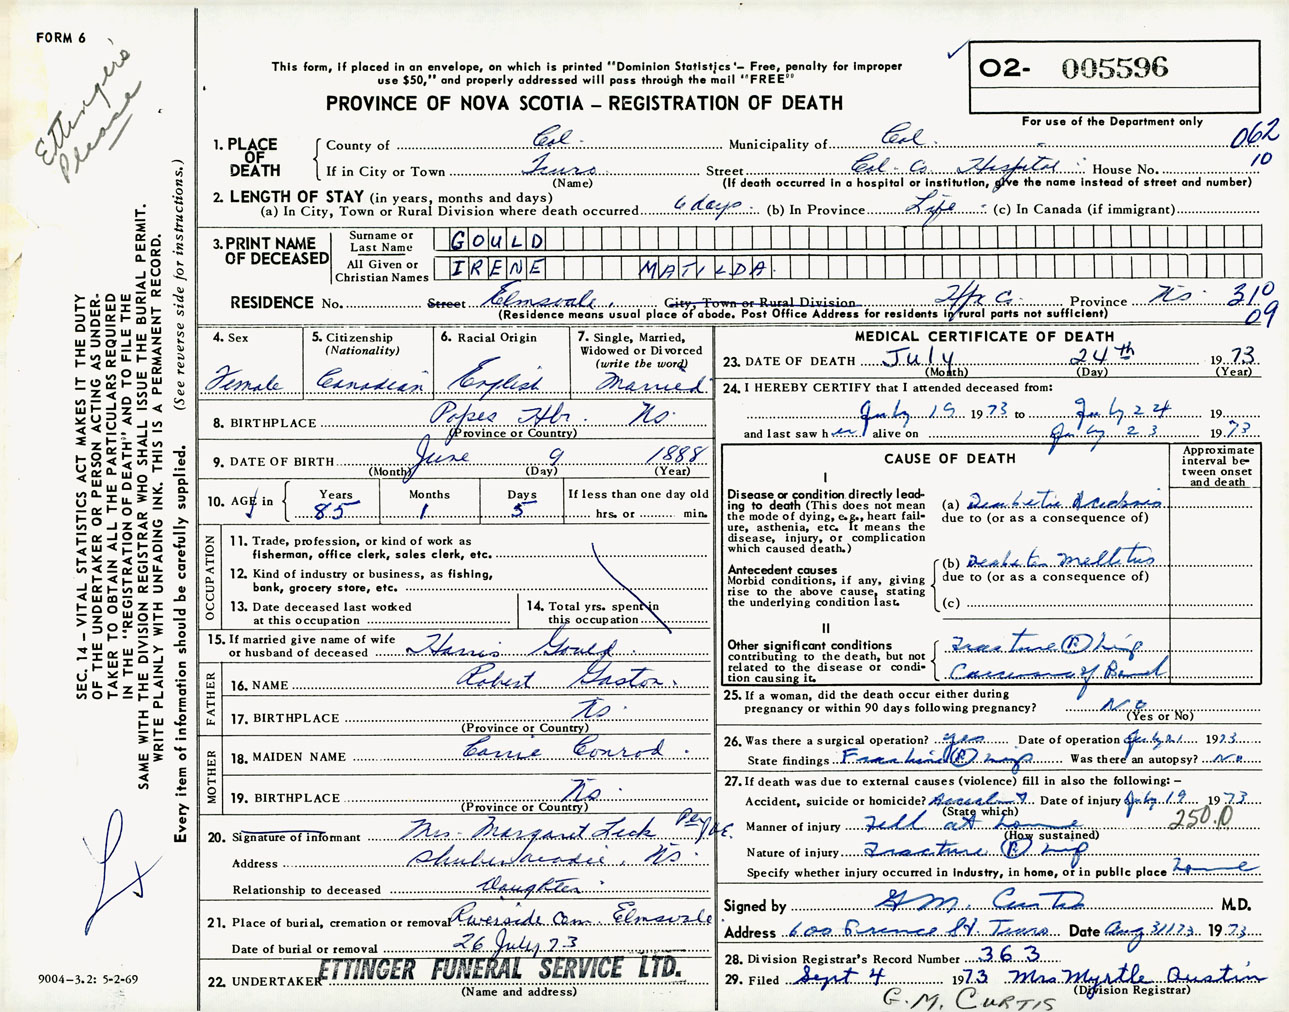 FORM 6
Ettinger's
Please
This form, if placed in an envelope, on which is printed "Dominion Statistics'– Free, penalty for improper
use $50," and properly addressed will pass through the mail "FREE"
PROVINCE OF NOVA SCOTIA – REGISTRATION OF DEATH
O2- 005596
For use of the Department only
062
10
1. PLACE OF DEATH
County of Col. Municipality of Col.
If in City or Town Truro Street Col. Co. Hospital House No.
(Name) (If death occurred in a hospital or institution, give the name instead of street and number)
2. LENGTH OF STAY (in years, months and days)
(a) In City, Town or Rural Division where death occurred 6 days. (b) In Province Life (c) In Canada (if immigrant)
3. PRINT NAME OF DECEASED
Surname or Last Name GOULD
All Given or Christian Names IRENE MATILDA.
RESIDENCE No. Street Elmsvale, City, Town or Rural Division Hfx Co. Province Ns. 310
(Residence means usual place of abode. Post Office Address for residents in rural parts not sufficient) 09
4. Sex Female
5. Citizenship (Nationality) Canadian
6. Racial Origin English
7. Single, Married, Widowed or Divorced (write the word) Married.
8. BIRTHPLACE Popes Hbr. Ns.
(Province or Country)
9. DATE OF BIRTH June 9 1888
(Month) (Day) (Year)
10. AGE in Years 85 Months 1 Days 5 If less than one day old
hrs. or min.
OCCUPATION
11. Trade, profession, or kind of work as
fisherman, office clerk, sales clerk, etc.
12. Kind of industry or business, as fishing,
bank, grocery store, etc.
13. Date deceased last worked
at this occupation
14. Total yrs. spent in
this occupation
15. If married give name of wife
or husband of deceased Harris Gould.
FATHER
16. NAME Robert Gaston.
17. BIRTHPLACE Ns.
(Province or Country)
MOTHER
18. MAIDEN NAME Carrie Conrod.
19. BIRTHPLACE Ns.
(Province or Country)
20. Signature of informant Mrs. Margaret Leck Per
Address Shubenacadie, Ns.
Relationship to deceased Daughter.
21. Place of burial, cremation or removal Riverside Cem. Elmsvale
Date of burial or removal 26 July 73
22. UNDERTAKER ETTINGER FUNERAL SERVICE LTD.
(Name and address)
MEDICAL CERTIFICATE OF DEATH
23. DATE OF DEATH July 24th 1973
(Month) (Day) (Year)
24. I HEREBY CERTIFY that I attended deceased from:
July 19 1973 to July 24 19
and last saw her alive on July 23 1973
CAUSE OF DEATH
Approximate interval between onset and death
I
Disease or condition directly lead-
ing to death (This does not mean
the mode of dying, e.g., heart fail-
ure, asthenia, etc. It means the
disease, injury, or complication
which caused death.)
(a) Diabetic Acidosis
due to (or as a consequence of)
Antecedent causes
Morbid conditions, if any, giving
rise to the above cause, stating
the underlying condition last.
(b) Diabetes Mellitus
due to (or as a consequence of)
(c)
II
Other significant conditions
contributing to the death, but not
related to the disease or condi-
tion causing it.
Fracture (R) hip
Carcinoma of Bowel
25. If a woman, did the death occur either during
pregnancy or within 90 days following pregnancy? No
(Yes or No)
26. Was there a surgical operation? yes Date of operation July 21 1973
State findings Fracture (R) hip Was there an autopsy? No
27. If death was due to external causes (violence) fill in also the following: –
Accident, suicide or homicide? Accident Date of injury July 19 1973
(State which)
Manner of injury Fell at home 250.0
(How sustained)
Nature of injury Fracture (R) hip
Specify whether injury occurred in industry, in home, or in public place home
Signed by G M. Curtis M.D.
Address 600 Prince St Truro Date Aug 31/73 1973
28. Division Registrar's Record Number 363
29. Filed Sept 4 1973 Mrs Myrtle Austin
(Division Registrar)
G. M. CURTIS
SEC. 14 – VITAL STATISTICS ACT MAKES IT THE DUTY
OF THE UNDERTAKER OR PERSON ACTING AS UNDER-
TAKER TO OBTAIN ALL THE PARTICULARS REQUIRED
IN THE "REGISTRATION OF DEATH" AND TO FILE THE
SAME WITH THE DIVISION REGISTRAR WHO SHALL ISSUE THE BURIAL PERMIT.
WRITE PLAINLY WITH UNFADING INK. THIS IS A PERMANENT RECORD.
Every item of information should be carefully supplied. (See reverse side for instructions.)
9004–3.2: 5-2-69